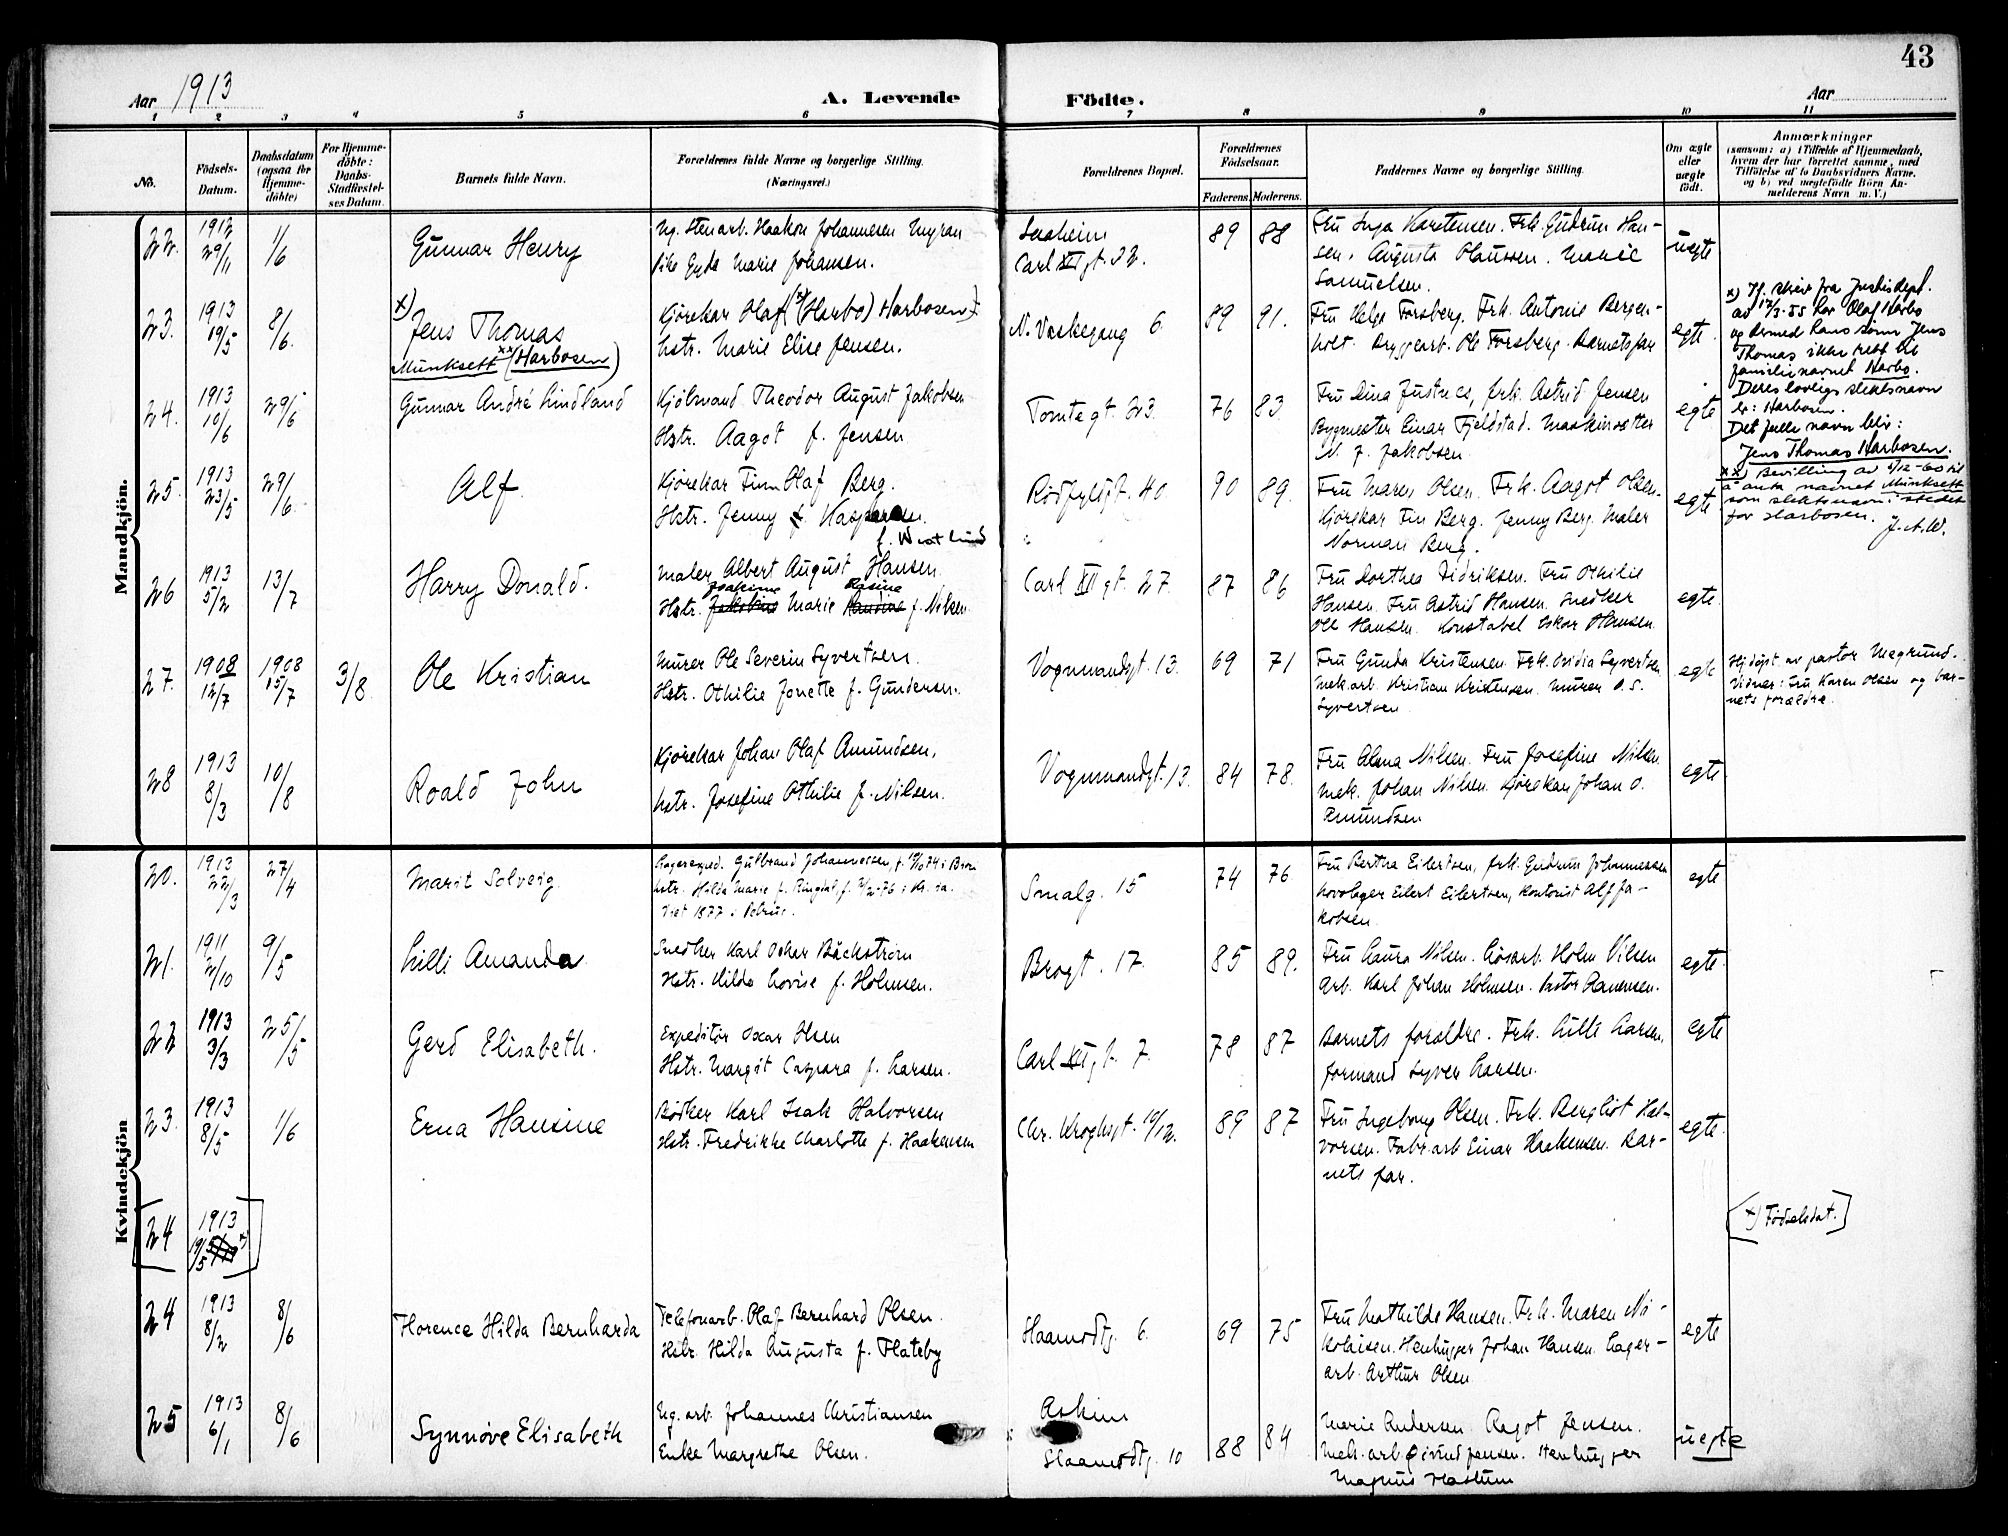 43
Aar 1913
A. Levende
Födte.
Aar
1 2 3 4 5 6 7 8 9 10 11
No.
Födsels-
Datum.
Daabsdatum
(ogsaa for
Hjemme-
döbte)
For Hjemme-
döbte:
Daabs-
Stadfæstel-
ses Datum.
Barnets fulde Navn.
Forældrenes fulde Navne og borgerlige Stilling.
(Næringsvei.)
Forældrenes Bopæl.
Forældrenes
Födselsaar.
Faderens. Moderens.
Faddernes Navne og borgerlige Stilling.
Om ægte
eller
uægte
födt.
Anmærkninger
(saasom: a) i Tilfælde af Hjemmedaab,
hvem der har forrettet samme, med
Tilföielse af to Daabsvidners Navne,
og b) ved uægtefödte Börn An-
melderens Navn m. V.)
Mandkjön.
22. 1912 29/11 1/6
Gunnar Henry
Ug. Stenarb. Haakon Johannesen Myran
Pike Gyda Marie Johansen.
Carl XII gt. 22.
89 88
Fru Inga Karstensen. Frk. Gudrun Han-
sen. Augusta Olaussen. Marie
Samuelsen.
uegte
23. 1913 19/5 8/6
x) Jens Thomas
Munksett xx (Harbosen)
Kjörekar Olaf (x) (Harbo) Harbosen
Hstr. Marie Elise Jensen.
N. Vaskegang 6.
89 91.
Fru Helga Forsberg. Frk. Antonie Bergen-
holt. Bryggearb. Ole Forsberg. Barnets far
egte
x) Ifl. skriv fra Justisdept.
av 12/3-55 har Olaf Harbo
og dermed hans sönn Jens
Thomas ikke rett til
familienavnet Harbo.
Deres lovlige slektsnavn
er: Harbosen.
Det fulle navn blir:
Jens Thomas Harbosen.
xx) Bevilling av 1/12-60 til
å anta navnet Munksett
som slektsnavn i stedet
for Harbosen. J.A.W.
24. 1913 10/6 29/6
Gunnar André Lindland
Kjölmand Theodor August Jakobsen
Hstr. Aagot f. Jensen
Tomtegt. 23.
76 83.
Fru Dina Justnes, frk. Astrid Jensen
Bygmester Einar Fjeldstad. Maskinsetter
N. J. Jakobsen
egte
25. 1913 23/5 29/6
Alf.
Kjörekar Finn Olaf Berg.
Hstr. Jenny f. Kaspersen.
f. Westlund
Rödfyldgt. 40.
90 89.
Fru Maren Olsen. Frk. Aagot Olsen.
Kjörekar Fin Berg. Jenny Berg. Maler
Norman Berg.
egte
26 1913 5/2 13/7
Harry Donald.
Maler Albert August Hansen.
Joakime Rasine
Hstr. Jakobine Marie Hansine f. Nilsen.
Carl XII gt. 27.
87 86
Fru Dorthea Didriksen. Fru Othilie
Hansen. Fru Astrid Hansen. Snedker
Ole Hansen. Konstabel Oskar Hansen.
egte.
27. 1908 12/7 1908 15/7 3/8.
Ole Kristian
Murer Ole Severin Syvertsen.
Hstr. Othilie Jonette f. Gundersen.
Vognmandsgt. 13.
69 71
Fru Gunda Kristensen. Frk. Ovidia Syvertsen
Mek.arb. Kristian Kristensen. Murer O. S.
Syvertsen
egte
Hjdöpt. av pastor Megrund.
Vidner: Fru Karen Olsen og bar-
nets forældre.
28 1913 8/3 10/8
Roald John
Kjörekar Johan Olaf Amundsen.
Hstr. Josefine Othilie f. Nilsen.
Vognmandgt. 13.
84 78.
Fru Alma Nilsen. Fru Josefine Nilsen.
Mek. Johan Nilsen. Kjörekar Johan O.
Amundsen
egte
Kvindekjön
20. 1913 22/3 27/4
Marit Solveig.
Lagerexped. Gulbrand Johannessen, f.
Hstr. Hilda Marie f. Ringdal, f.
Viet 1877 i Petrus.
Smalg. 15
74 76
Fru Bertha Eilertsen, frk. Gudrun Johannessen
Hovslager Eilert Eilertsen, Kontorist Alf Ja-
kobsen
egte
21. 1911 2/10 9/5
Lilli Amanda
Snedker Karl Oskar Bäckström
Hstr. Hilda Lovise f. Holmsen.
Brogt. 17.
85 89.
Fru Laura Nilsen. Lösarb. Holm Nilsen
Arb. Karl Johan Holmsen.
egte.
22 1913 3/3 25/5
Gerd Elisabeth.
Expeditör Oscar Olsen
Hstr. Margit Caspara f. Larsen.
Carl XII gt. 7.
78 87
Barnets forældre. Frk. Lilli Larsen,
formand Syver Larsen.
egte
23. 1913 8/5 1/6
Erna Hansine
Bödker Karl Isak Halvorsen
Hstr. Fredrikke Charlotte f. Haakensen
Chr. Kroghsgt. 10/12.
89 87
Fru Ingeborg Olsen. Frk. Bergliot Hal-
vorsen. Fabr.arb Einar Haakensen. Bar-
nets far.
egte.
[24 1913 19/5 x)]
[x) Födselsdat.]
24 1913 8/2 8/6
Florence Hilda Bernharda
Telefonarb. Olaf Bernhard Olsen.
Hstr. Hilda Augusta f. Flateby
Slaamotg. 6.
69 75
Fru Mathilde Hansen. Frk. Maren Ni-
kolaisen. Stenhugger Johan Hansen. Lager-
arb. Arthur Olsen
egte
25 1913 6/1 8/6
Synnöve Elisabeth
Ug. arb. Johannes Christiansen
Enke Margrethe Olsen.
Askim
Slaamotg. 10
88 84
Marie Andersen. Aagot Jensen.
Mek. arb. Öivind Jensen. Stenhugger
Magnus Hastum
uegte